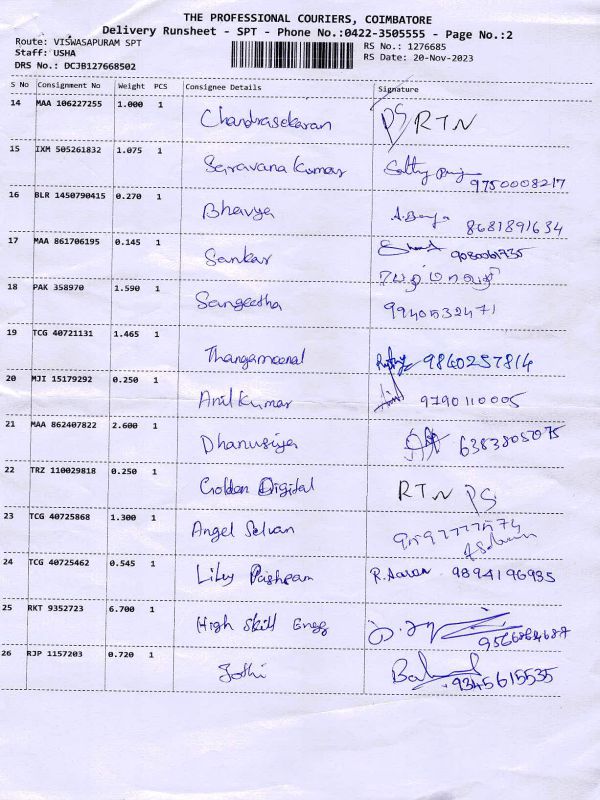 THE PROFESSIONAL COURIERS, COIMBATORE
Delivery Runsheet - SPT - Phone No.:0422-3505555 - Page No.:2
Route: VISWASAPURAM SPT
RS No.: 1276685
Staff: USHA
RS Date: 20-Nov-2023
DRS No.: DCJB127668502
S No Consignment No Weight PCS Consignee Details Signature
14 MAA 106227255 1.000 1 Chandrasekaran PS RTN
15 IXM 505261832 1.075 1 Saravana Kumar 9750008217
16 BLR 1450790415 0.270 1 Bhavya 8681891634
17 MAA 861706195 0.145 1 Sankar
18 PAK 358970 1.590 1 Sangeetha 9940532471
19 TCG 40721131 1.465 1 Thangameenal 9840257814
20 MJI 15179292 0.250 1 Anil Kumar 9790110005
21 MAA 862407822 2.600 1 Dhanusiya 6383805075
22 TRZ 110029818 0.250 1 Golden Digital RTN PS
23 TCG 40725868 1.300 1 Angel Selvan
24 TCG 40725462 0.545 1 Lilly R.Aaran 9894196935
25 RKT 9352723 6.700 1 High Skill Engg
26 RJP 1157203 0.720 1 Jothi 9345615535